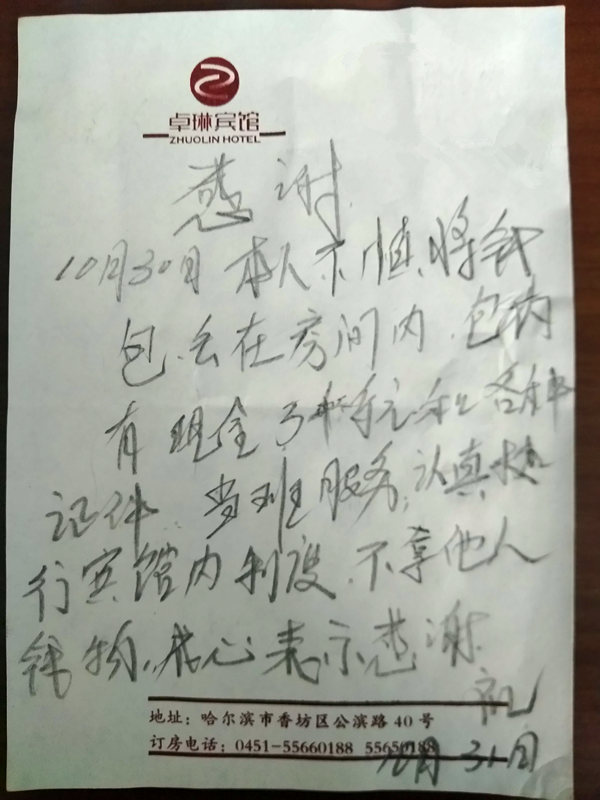 卓琳宾馆
ZHUOLIN HOTEL
感谢
10月30日 本人不慎将钱
包丢在房间内.包内
有现金3千多元和各种
证件 当班服务,认真执
行宾馆内制度.不拿他人
钱物.衷心表示感谢
地址：哈尔滨市香坊区公滨路40号
订房电话：0451-55660188
月31日